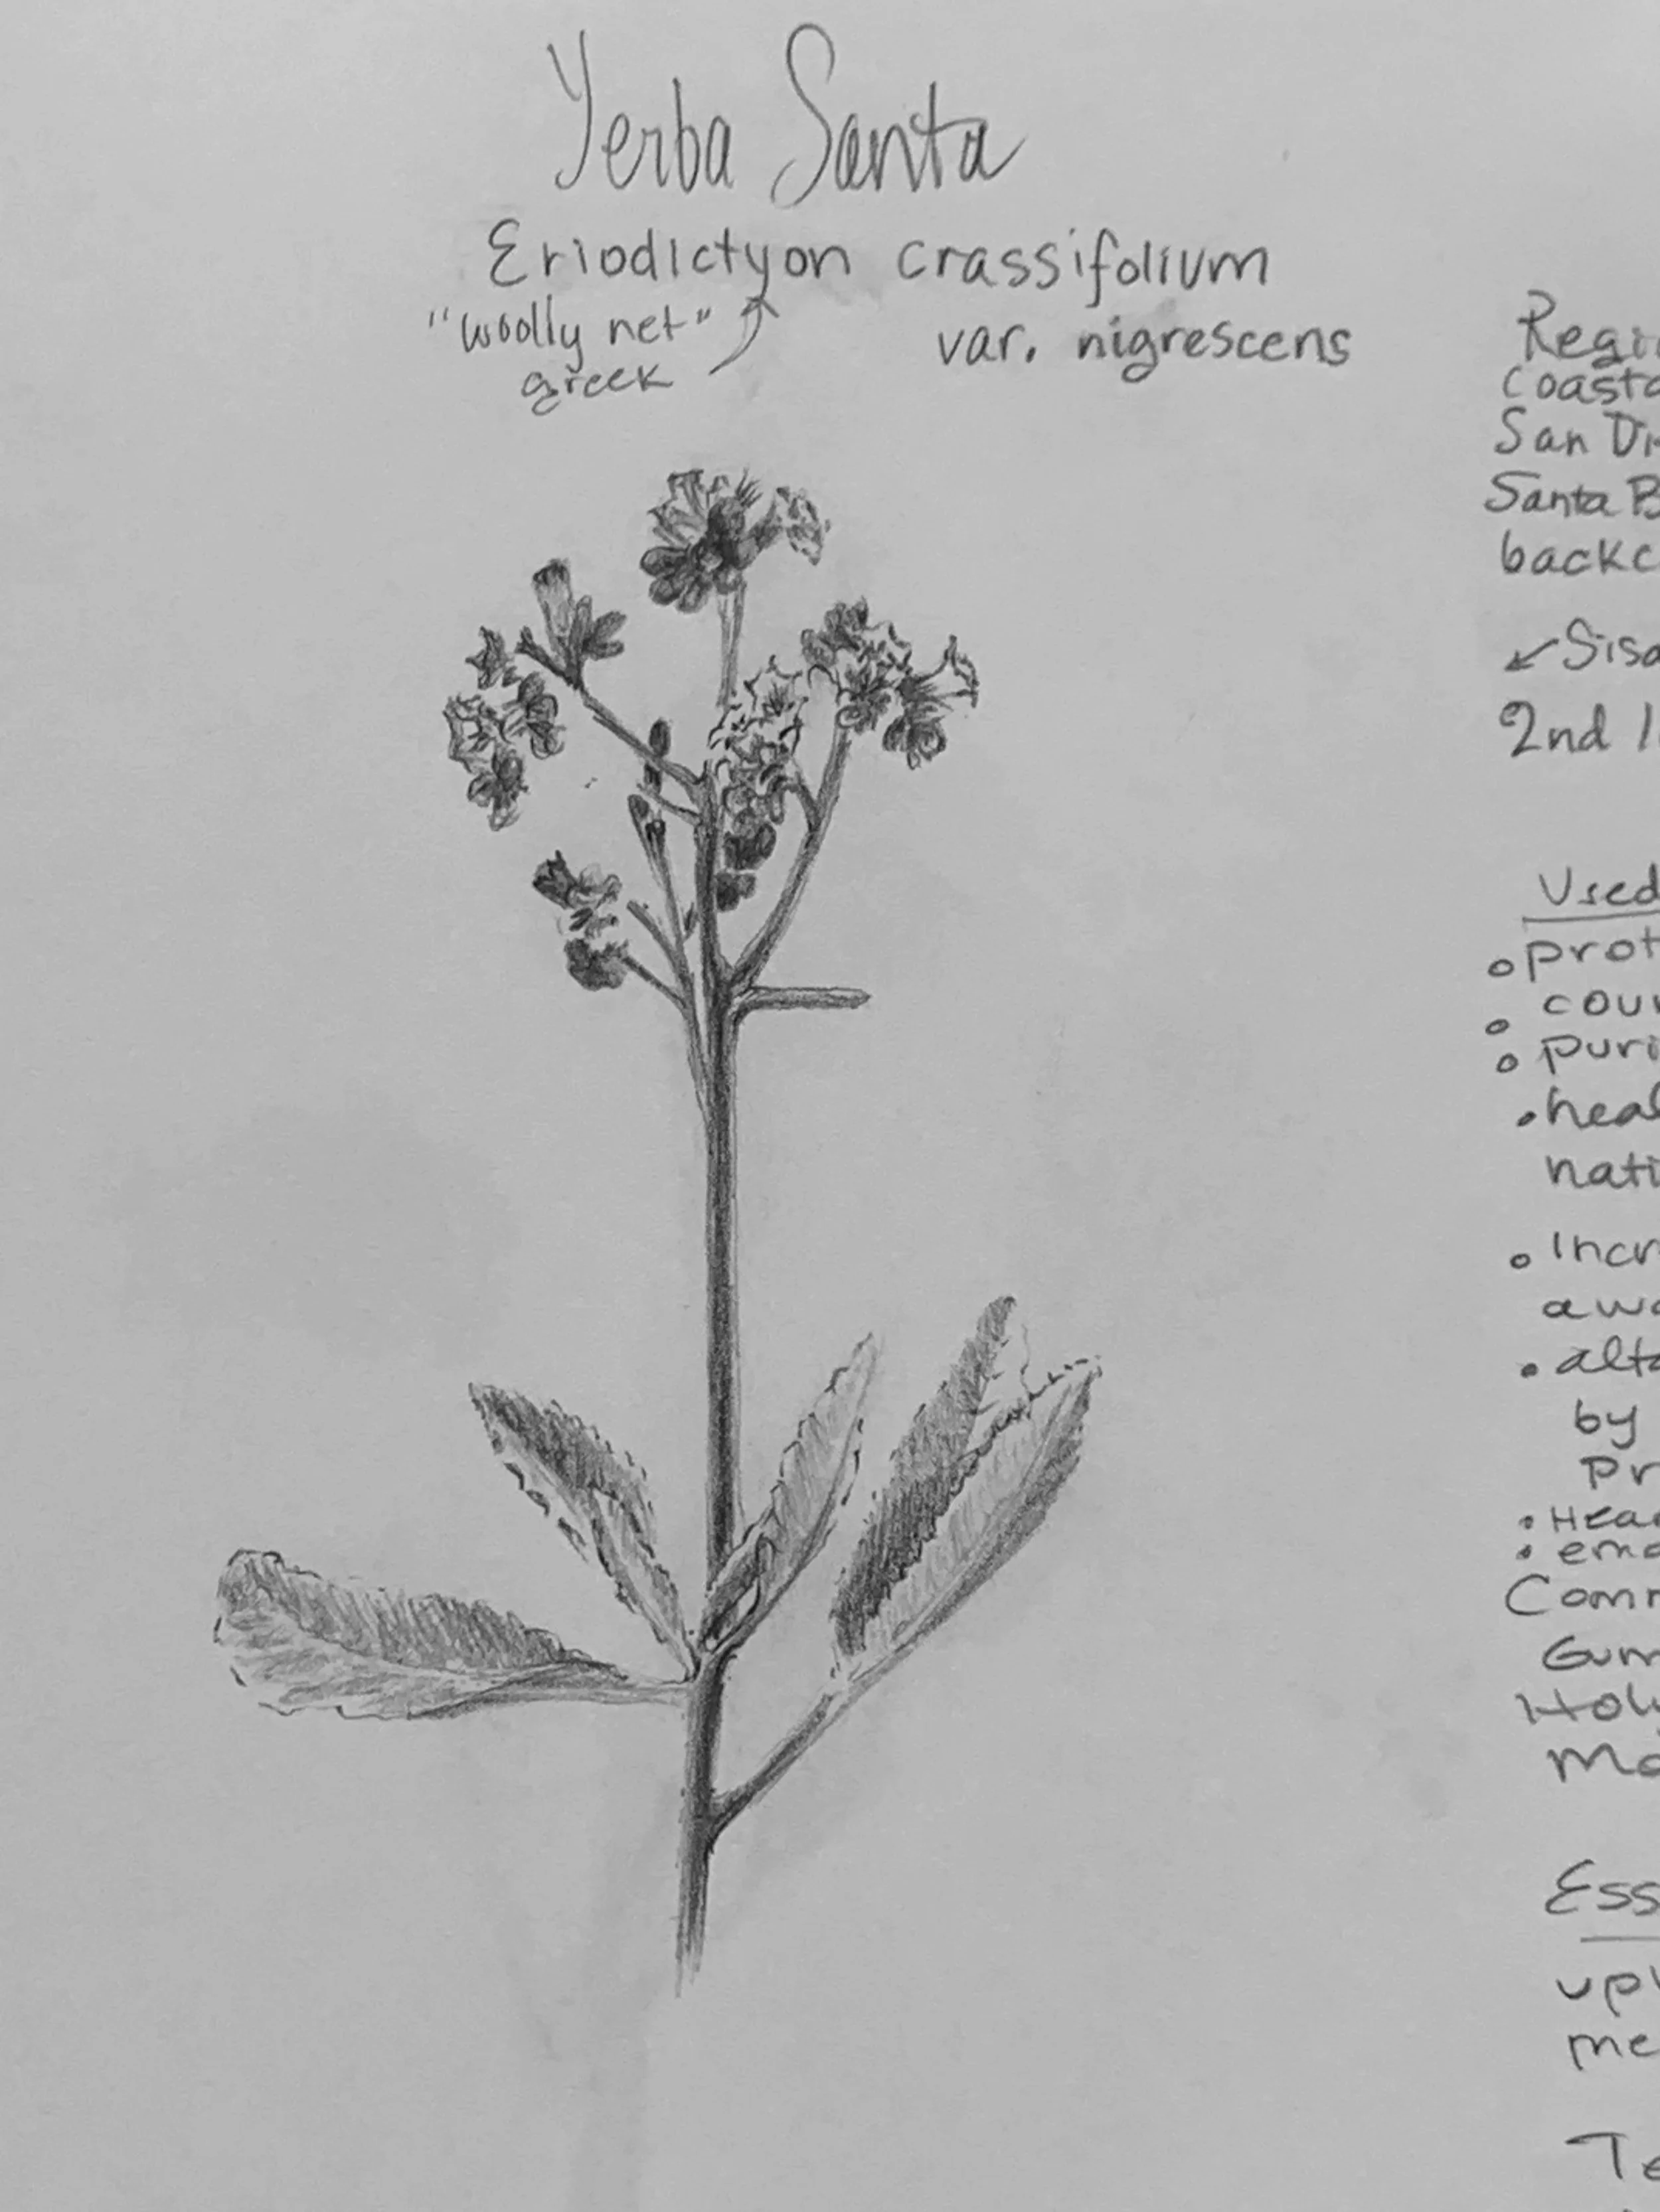 Yerba Santa
Eriodictyon crassifolium
"woolly net"
greek
var. nigrescens
Regi
Coasta
San Di
Santa B
backc
Sisa
2nd
Used
prot
cour
puri
heal
nati
Incr
awa
alta
by
Pr
Hea
emo
Comm
Gum
Holy
Mo
Ess
upl
me
Te